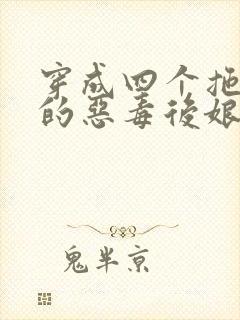 穿成四个拖
的恶毒後娘
鬼半京